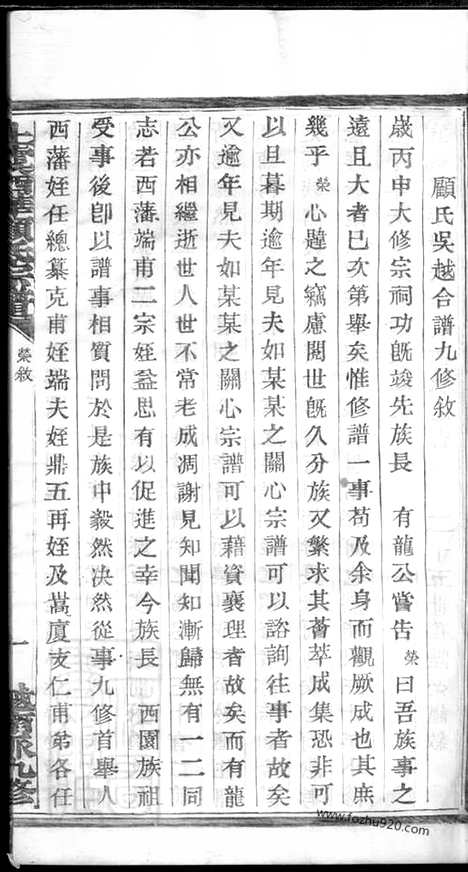 顧氏吳越合譜九修敘
歲丙申大修宗祠功旣竣先族長　有龍公嘗告榮曰吾族事之
遠且大者已次第舉矣惟修譜一事苟及余身而觀厥成也其庶
幾乎榮心韙之竊慮閱世旣久分族又繁求其薈萃成集恐非可
以旦暮期逾年見夫如某某之關心宗譜可以諮詢往事者故矣
又逾年見夫如某某之關心宗譜可以藉資襄理者故矣而有龍
公亦相繼逝世人世不常老成凋謝見知聞知漸歸無有一二同
志若西藩端甫二宗姪益思有以促進之幸今族長　西園族祖
受事後卽以譜事相質問於是族中毅然決然從事九修首舉人
西藩姪任總纂克甫姪端夫姪鼎五再姪及嵩廈支仁甫弟各任
榮敘
一
www.fozhu920.com